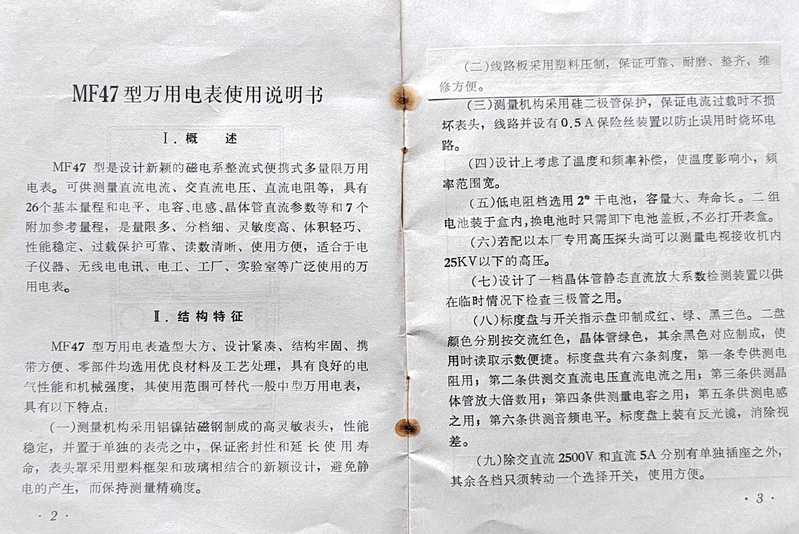 MF47型万用电表使用说明书
Ⅰ．概　述
MF47 型是设计新颖的磁电系整流式便携式多量限万用
电表。可供测量直流电流、交直流电压、直流电阻等，具有
26个基本量程和电平、电容、电感、晶体管直流参数等和 7 个
附加参考量程，是量限多、分档细、灵敏度高、体积轻巧、
性能稳定、过载保护可靠、读数清晰、使用方便，适合于电
子仪器、无线电电讯、电工、工厂、实验室等广泛使用的万
用电表。
Ⅱ．结构特征
MF47 型万用电表造型大方、设计紧凑、结构牢固、携
带方便、零部件均选用优良材料及工艺处理，具有良好的电
气性能和机械强度，其使用范围可替代一般中型万用电表，
具有以下特点：
(一)测量机构采用铝镍钴磁钢制成的高灵敏表头，性能
稳定，并置于单独的表壳之中，保证密封性和延长使用寿
命，表头罩采用塑料框架和玻璃相结合的新颖设计，避免静
电的产生，而保持测量精确度。
· 2 ·
(二)线路板采用塑料压制，保证可靠、耐磨、整齐、维
修方便。
(三)测量机构采用硅二极管保护，保证电流过载时不损
坏表头，线路并设有 0.5 A 保险丝装置以防止误用时烧坏电
路。
(四)设计上考虑了温度和频率补偿，使温度影响小，频
率范围宽。
(五)低电阻档选用 2# 干电池，容量大、寿命长。二组
电池装于盒内，换电池时只需卸下电池盖板，不必打开表盒。
(六)若配以本厂专用高压探头尚可以测量电视接收机内
25KV以下的高压。
(七)设计了一档晶体管静态直流放大系数检测装置以供
在临时情况下检查三极管之用。
(八)标度盘与开关指示盘印制成红、绿、黑三色。二盘
颜色分别按交流红色，晶体管绿色，其余黑色对应制成，使
用时读取示数便捷。标度盘共有六条刻度，第一条专供测电
阻用；第二条供测交直流电压直流电流之用；第三条供测晶
体管放大倍数用；第四条供测量电容之用；第五条供测电感
之用；第六条供测音频电平。标度盘上装有反光镜，消除视
差。
(九)除交直流 2500V 和直流 5A 分别有单独插座之外，
其余各档只须转动一个选择开关，使用方便。
· 3 ·